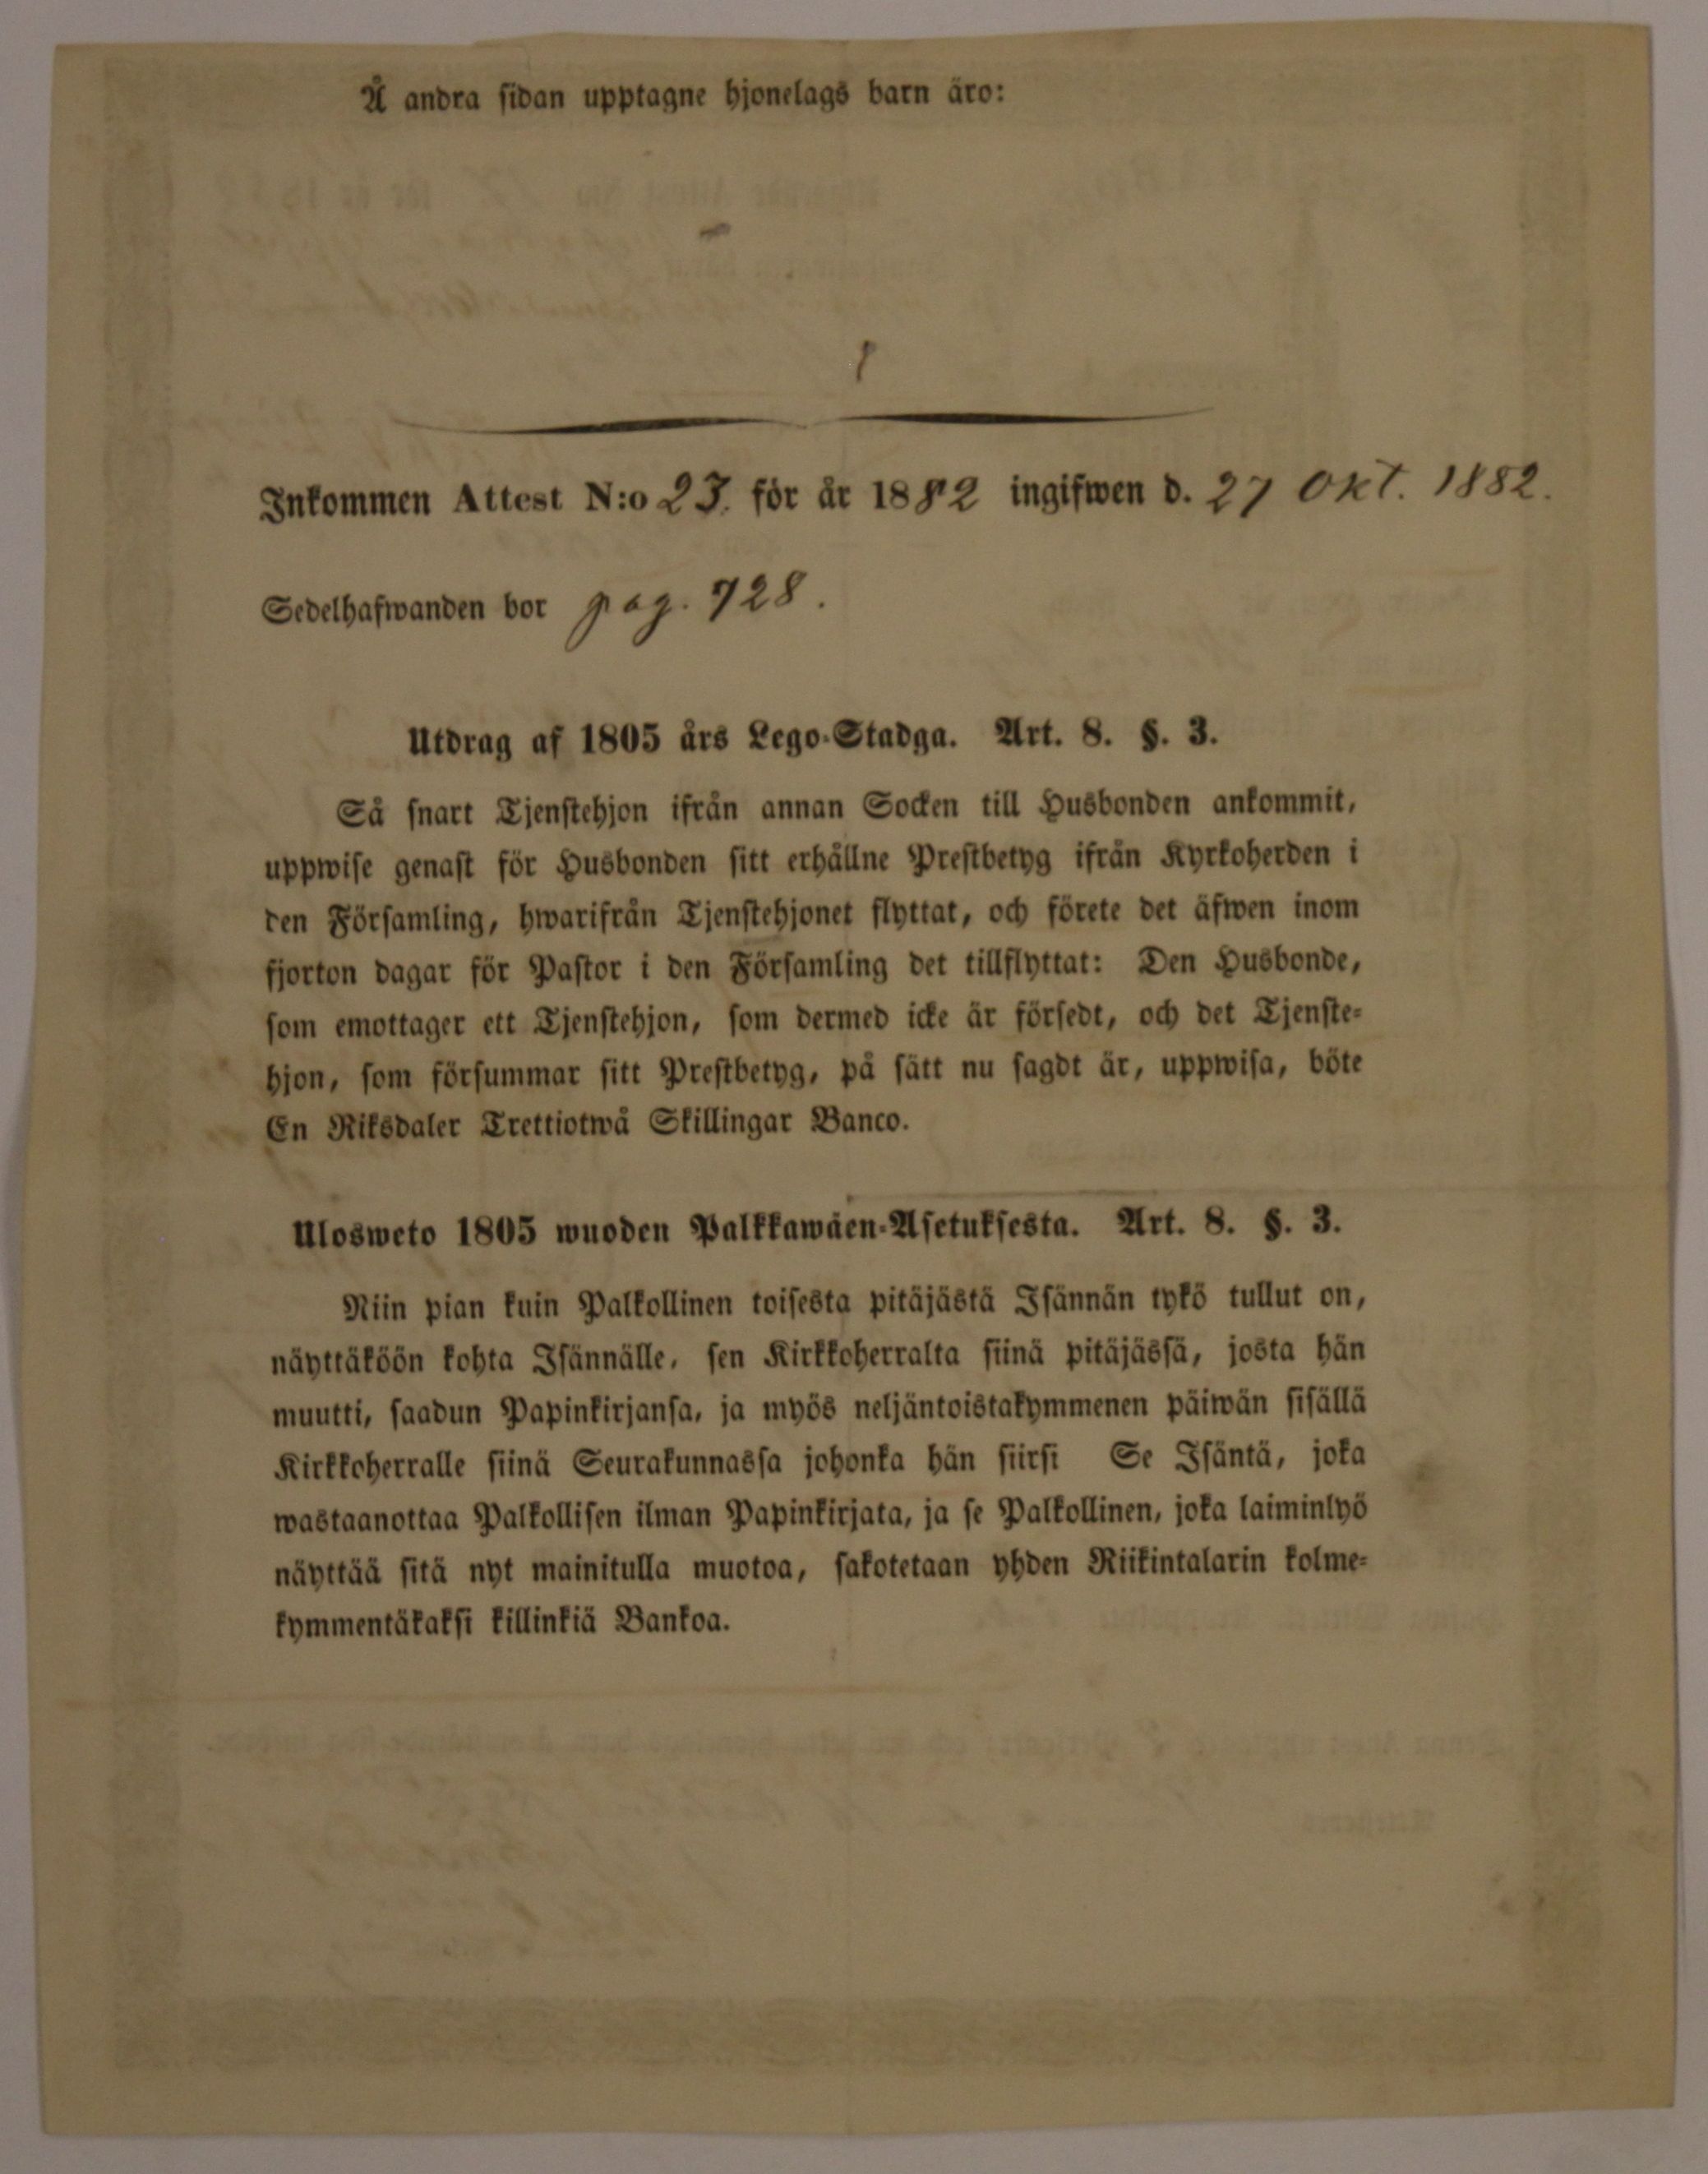 Å andra sidan upptagne hjonelags barn äro:
Inkommen Attest N:o 23. för år 1882 ingifwen d. 27 Okt. 1882.
Sedelhafwanden bor pag. 728.
Utdrag af 1805 års Lego-Stadga. Art. 8. §. 3.
Så snart Tjenstehjon ifrån annan Socken till Husbonden ankommit,
uppwise genast för Husbonden sitt erhållne Prestbetyg ifrån Kyrkoherden i
den Församling, hwarifrån Tjenstehjonet flyttat, och förete det äfwen inom
fjorton dagar för Pastor i den Församling det tillflyttat: Den Husbonde,
som emottager ett Tjenstehjon, som dermed icke är försedt, och det Tjenste-
hjon, som försummar sitt Prestbetyg, på sätt nu sagdt är, uppwisa, böte
En Riksdaler Trettiotwå Skillingar Banco.
Ulosweto 1805 wuoden Palkkawäen-Asetuksesta. Art. 8. §. 3.
Niin pian kuin Palkollinen toisesta pitäjästä Isännän tykö tullut on,
näyttäköön kohta Isännälle, sen Kirkkoherralta siinä pitäjässä, josta hän
muutti, saadun Papinkirjansa, ja myös neljäntoistakymmenen päiwän sisällä
Kirkkoherralle siinä Seurakunnassa johonka hän siirsi Se Isäntä, joka
wastaanottaa Palkollisen ilman Papinkirjata, ja se Palkollinen, joka laiminlyö
näyttää sitä nyt mainitulla muotoa, sakotetaan yhden Riikintalarin kolme-
kymmentäkaksi killinkiä Bankoa.